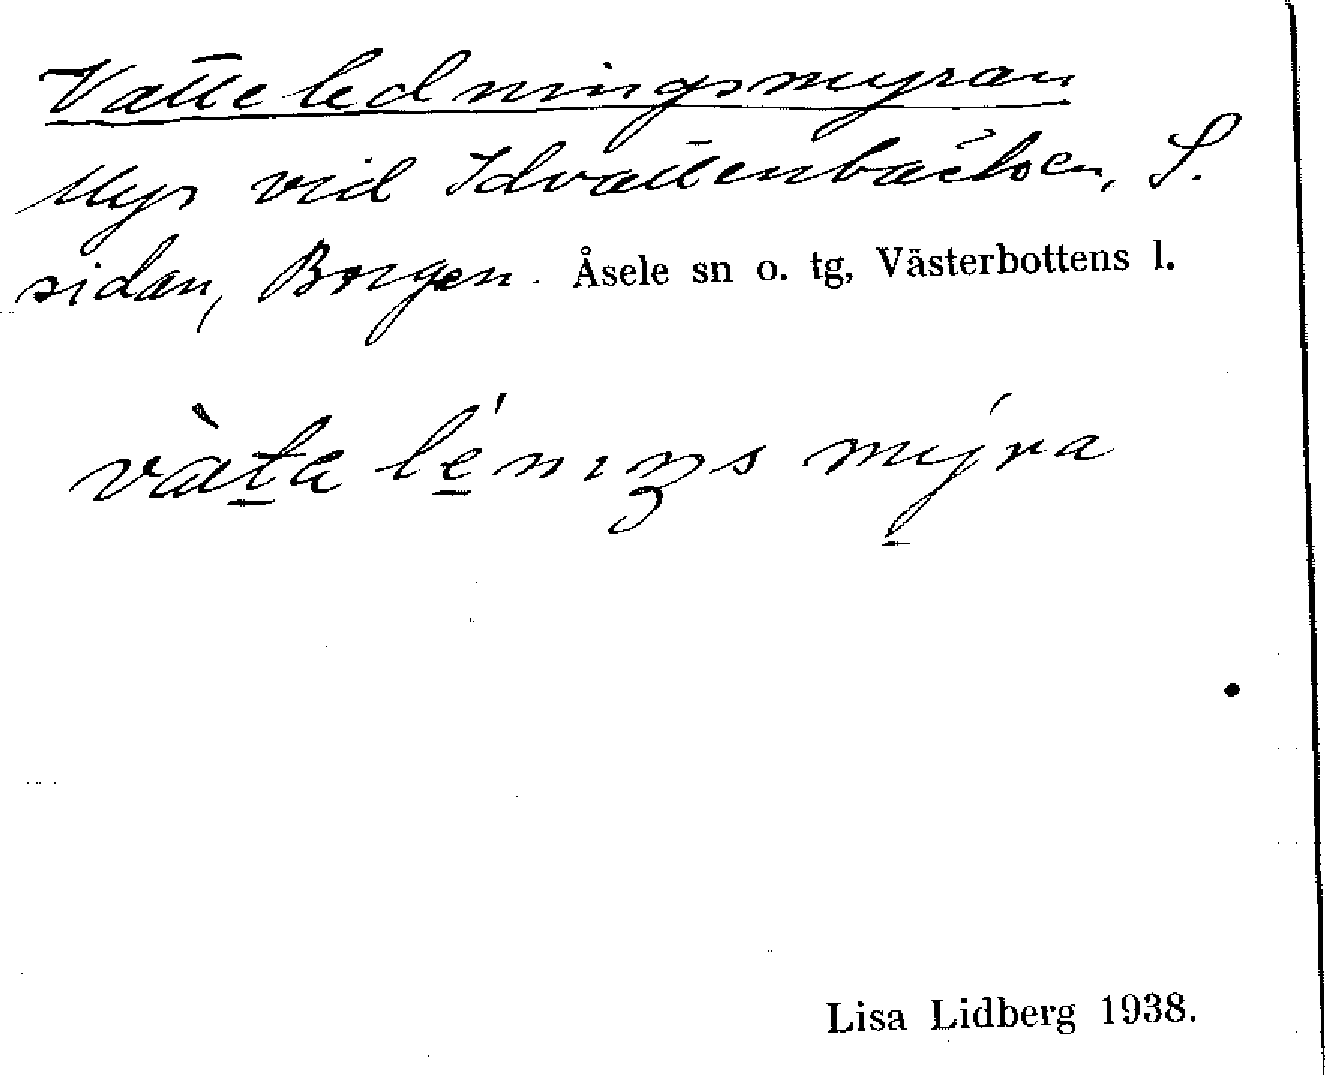 Vatteledningsmyran
Myr vid Idvattenbäcken, S.
sidan, Borgen. Åsele sn o. tg, Västerbottens l.
vàta léniŋs myra
Lisa Lidberg 1938.